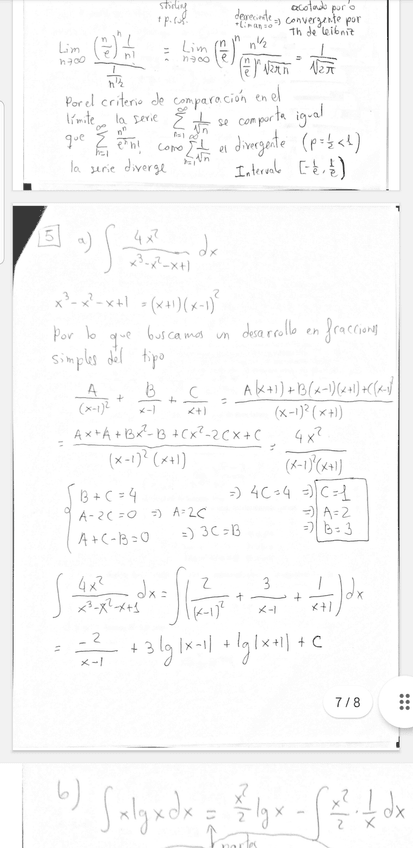 stirling
tip.(n)
decreciente
acotado por 0
convergente por
Th de Leibniz
Lim n→∞ ((n/e)^n 1/n!)/(1/n^{1/2}) = Lim n→∞ (n/e)^n n^{1/2}/((n/e)^n √(2πn)) = 1/√(2π)
Por el criterio de comparación en el
límite la serie ∑_{n=1}^∞ 1/√n se comporta igual
que ∑_{n=1}^∞ n^n/(e^n n!) como ∑_{n=1}^∞ 1/√n es divergente (p=1/2<1)
la serie diverge Intervalo [-1/e, 1/e)
5 a) ∫ 4x²/(x³-x²-x+1) dx
x³-x²-x+1 = (x+1)(x-1)²
Por lo que buscamos un desarrollo en fracciones
simples del tipo
A/(x-1)² + B/(x-1) + C/(x+1) = (A(x+1)+B(x-1)(x+1)+C(x-1)²)/((x-1)²(x+1))
= (Ax+A+Bx²-B+Cx²-2Cx+C)/((x-1)²(x+1)) = 4x²/((x-1)²(x+1))
B+C=4 ⇒ 4C=4 ⇒ C=1
A-2C=0 ⇒ A=2C ⇒ A=2
A+C-B=0 ⇒ 3C=B ⇒ B=3
∫ 4x²/(x³-x²-x+1) dx = ∫(2/(x-1)² + 3/(x-1) + 1/(x+1)) dx
= -2/(x-1) + 3 lg|x-1| + lg|x+1| + C
7 / 8
b) ∫ x lg x dx = x²/2 lg x - ∫ x²/2 · 1/x dx
partes